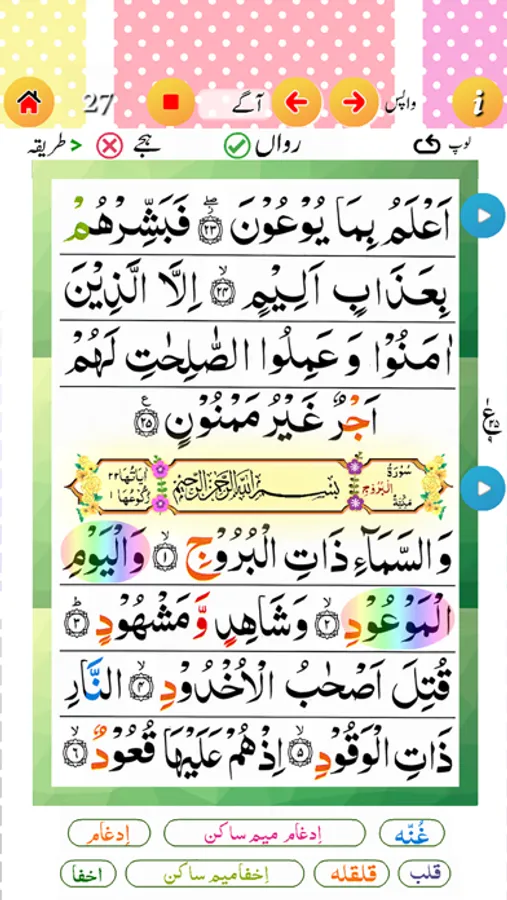 27 آگے واپس i
طریقہ > ہجے رواں لوپ
اَعْلَمُ بِمَا يُوْعُوْنَ ۲۳ فَبَشِّرْهُمْ
بِعَذَابٍ اَلِيْمٍ ۲۴ اِلَّا الَّذِيْنَ
اٰمَنُوْا وَ عَمِلُوا الصّٰلِحٰتِ لَهُمْ
اَجْرٌ غَيْرُ مَمْنُوْنٍ ۲۵
سُوْرَةُ الْبُرُوْجِ مَكِّيَّةٌ بِسْمِ اللّٰهِ الرَّحْمٰنِ الرَّحِيْمِ اٰيَاتُهَا ۲۲ رُكُوْعُهَا ۱
وَالسَّمَآءِ ذَاتِ الْبُرُوْجِ ۱ وَالْيَوْمِ
الْمَوْعُوْدِ ۲ وَشَاهِدٍ وَّ مَشْهُوْدٍ ۳
قُتِلَ اَصْحٰبُ الْاُخْدُوْدِ ۴ النَّارِ
ذَاتِ الْوَقُوْدِ ۵ اِذْ هُمْ عَلَيْهَا قُعُوْدٌ ۶
غُنّه إدغام میم ساکن إدغام
قلب قلقله إخفامیم ساکن اخفا